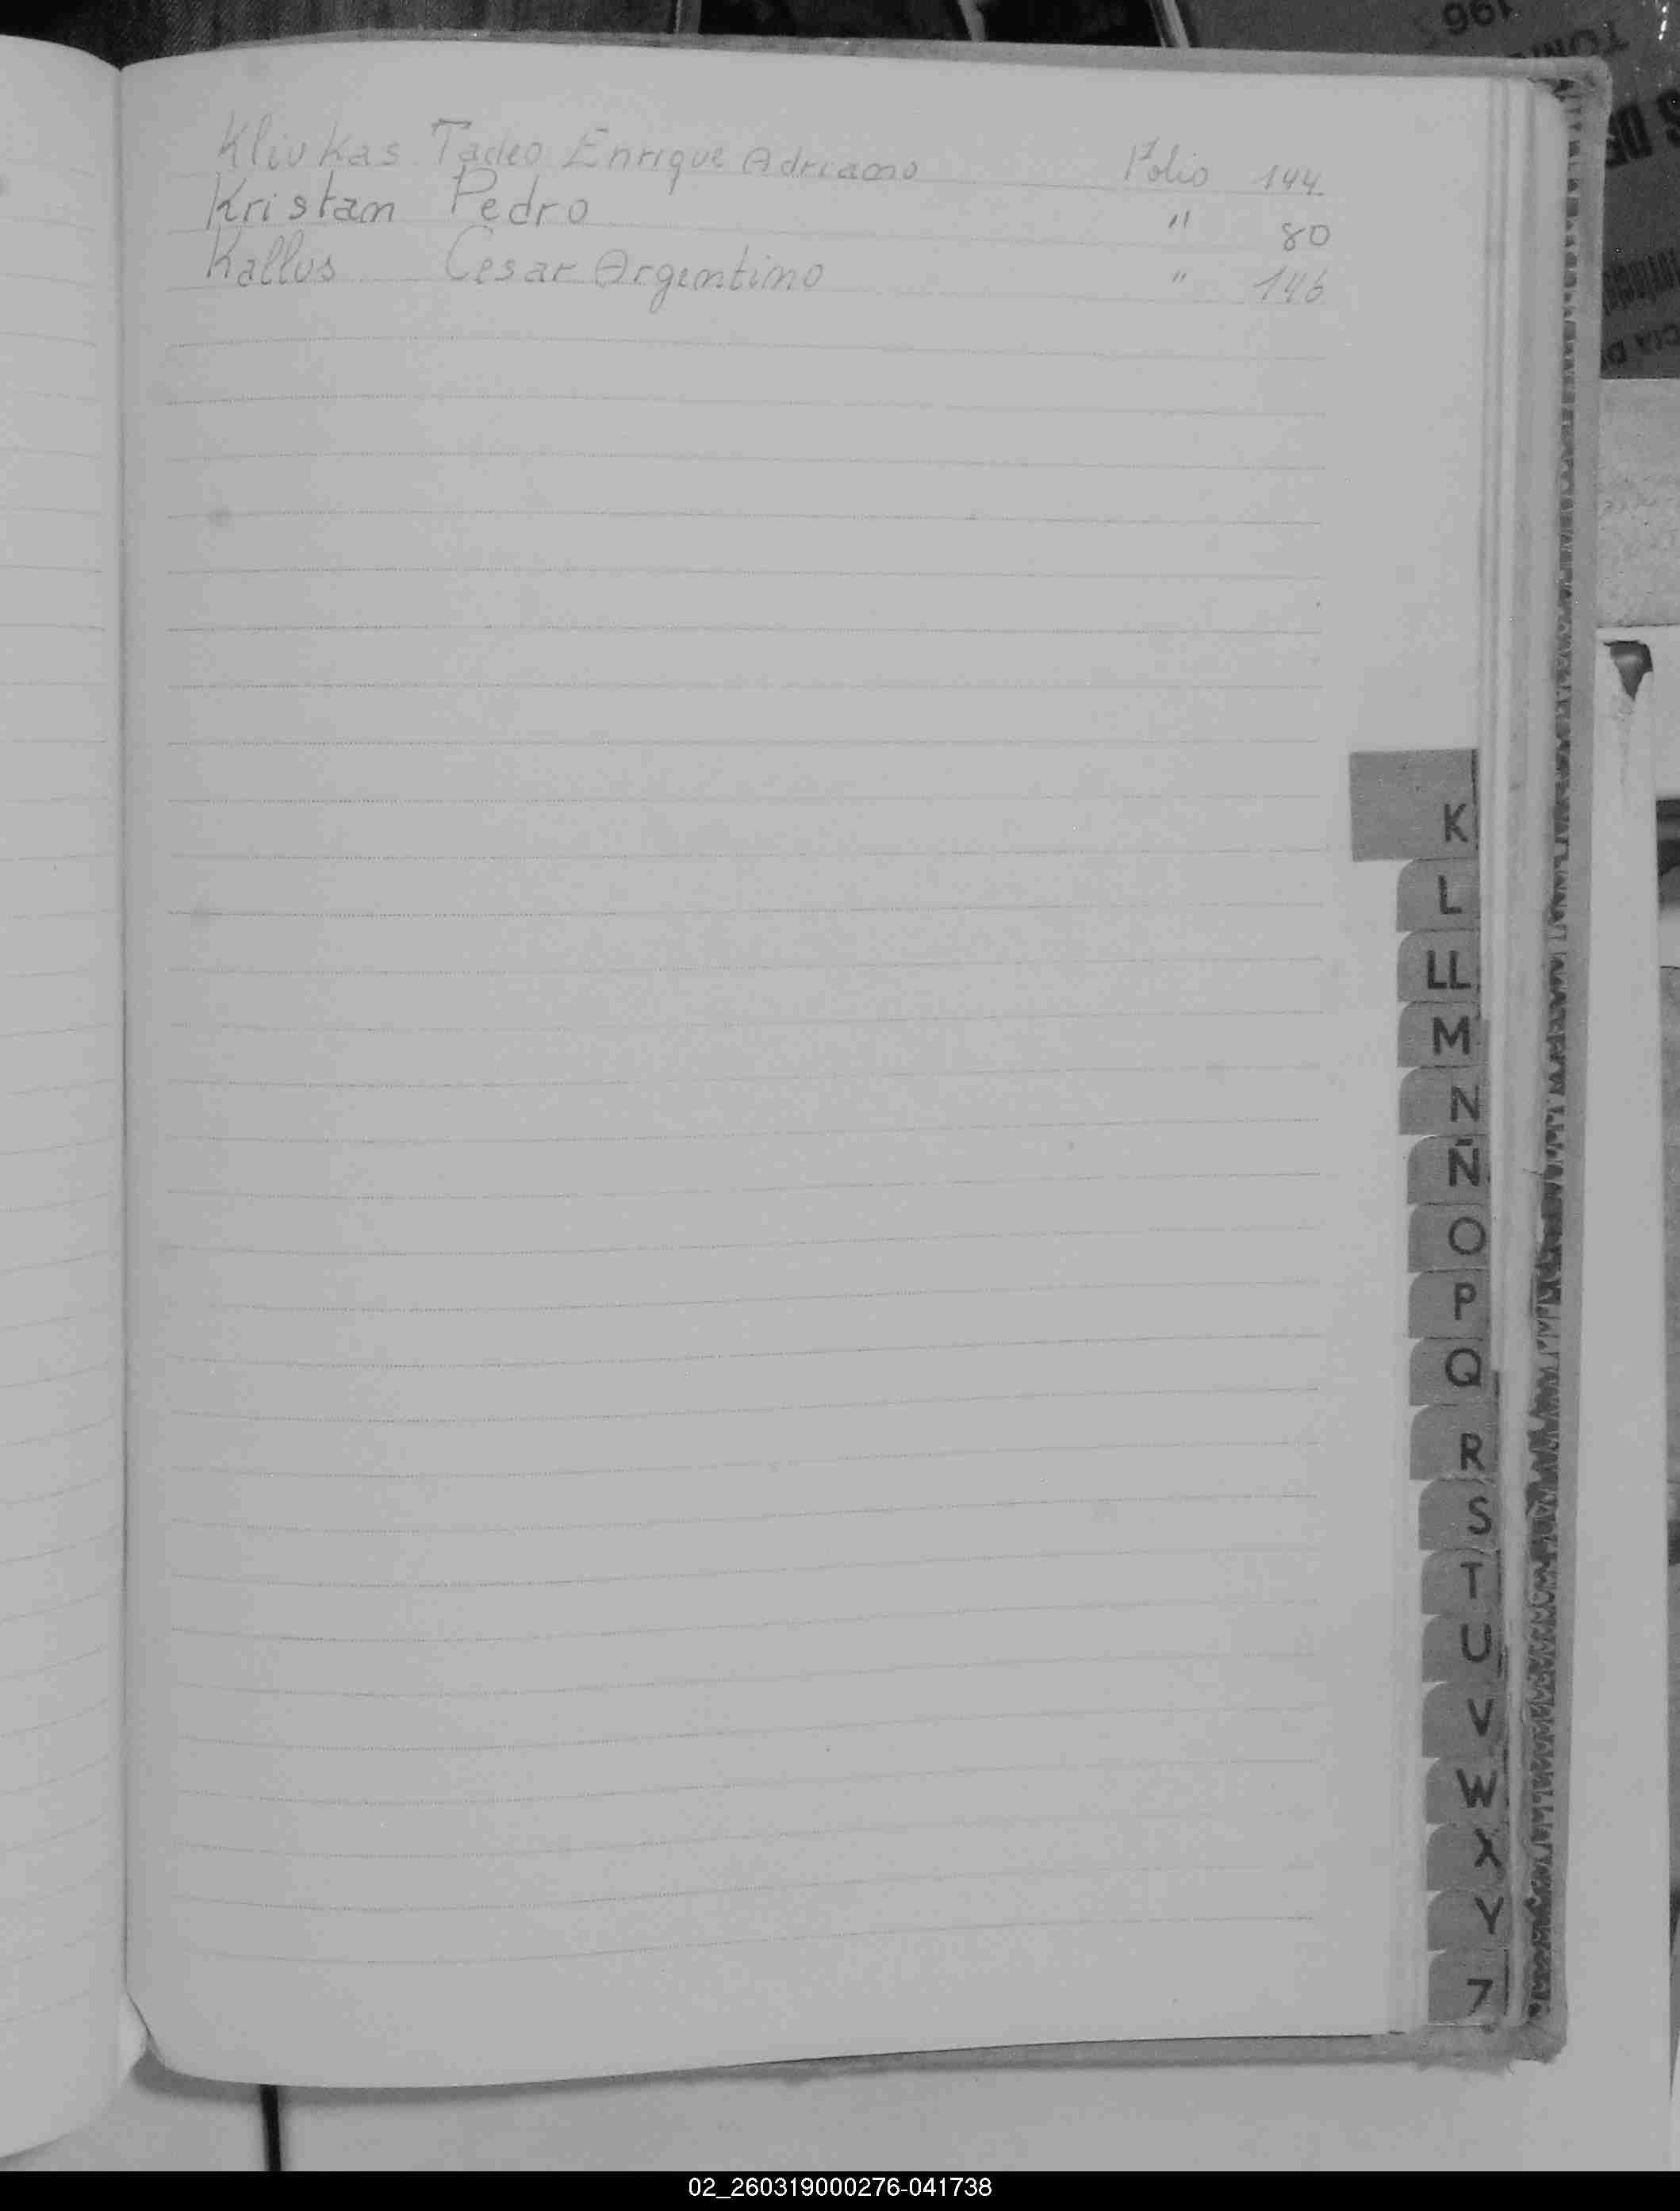 Klivkas Tadeo Enrique Adriano Folio 144
Kristan Pedro " 80
Kallus Cesar Argentino " 146
K
L
LL
M
N
Ñ
O
P
Q
R
S
T
U
V
W
X
Y
Z
02_260319000276-041738